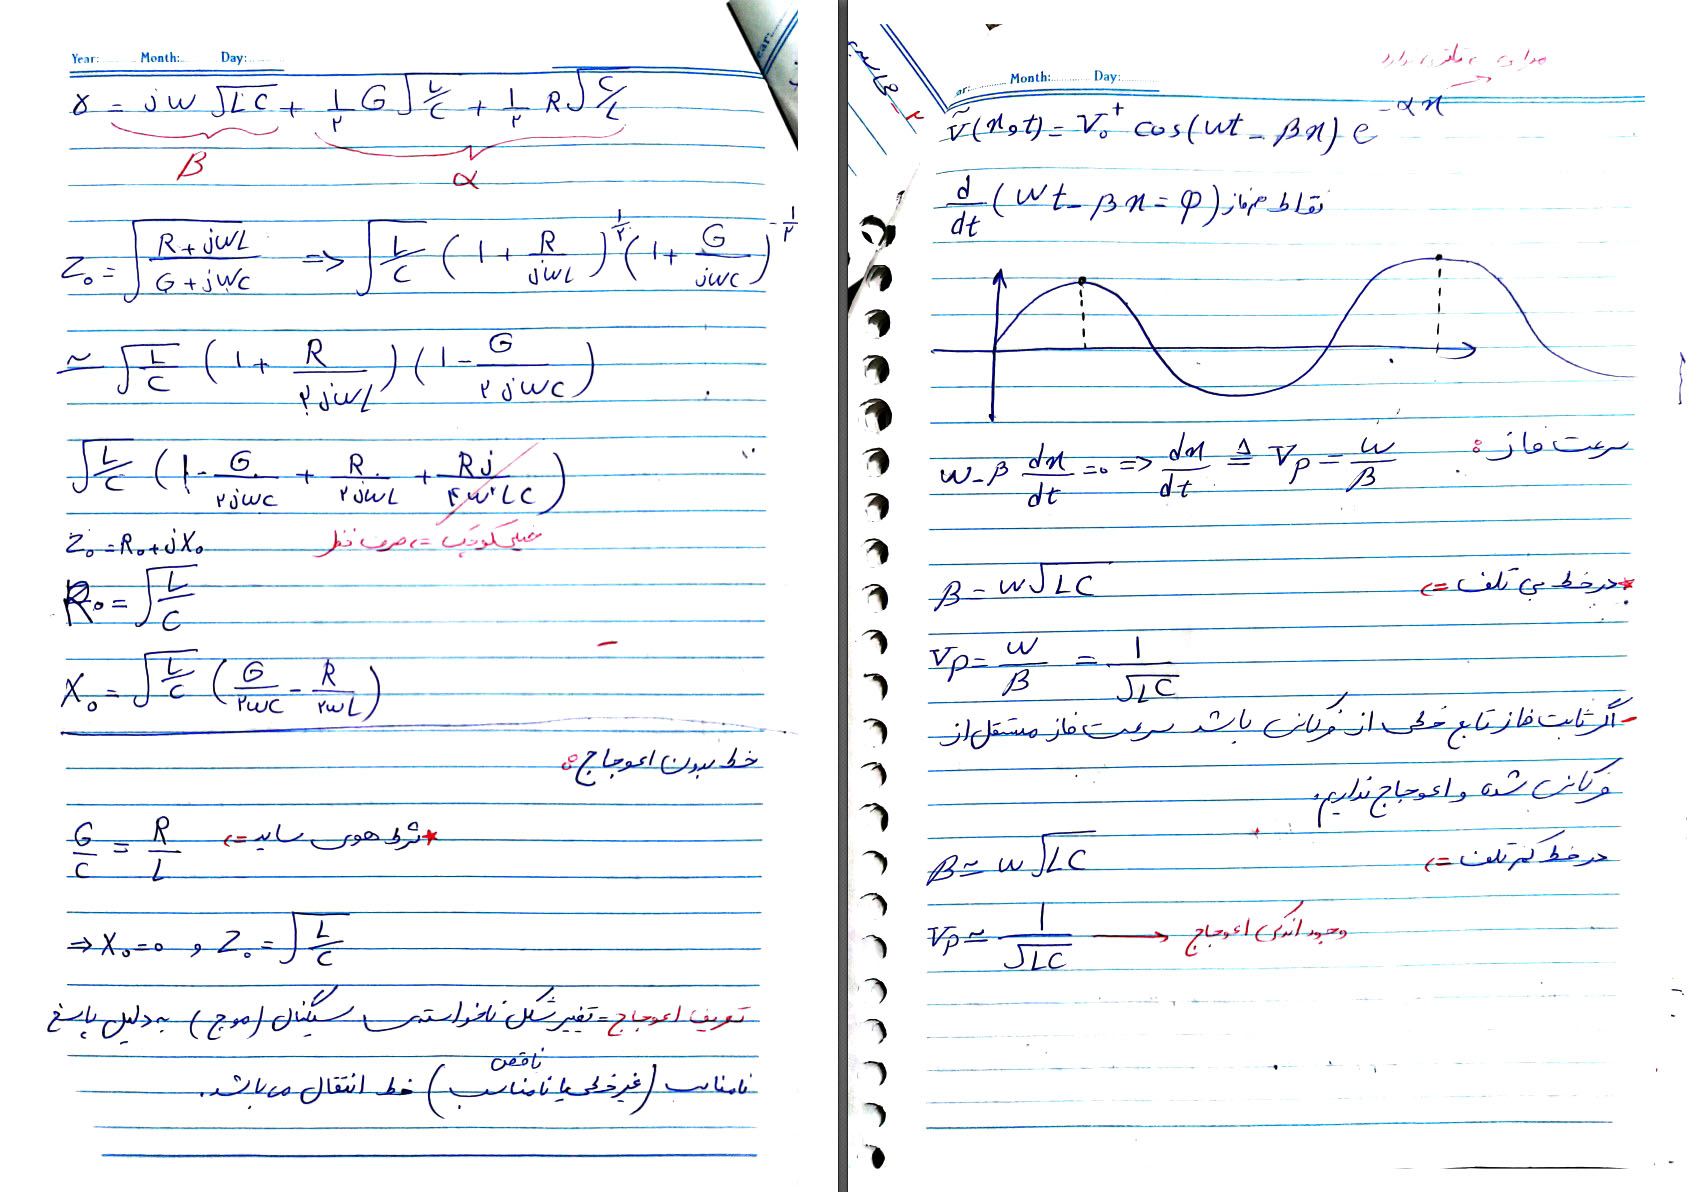 Year: Month: Day:
γ = jω √LC + ۱/۲ G √L/C + ۱/۲ R √C/L
β α
Z₀ = √(R + jωL / G + jωC) => √L/C (1 + R/jωL)^۱/۲ (1 + G/jωC)^-۱/۲
≃ √L/C (1 + R/۲jωL) (1 - G/۲jωC)
√L/C (1 - G/۲jωC + R/۲jωL + Rj/۴ω²LC)
Z₀ = R₀ + jX₀ خیلی کوچک => صرف نظر
R₀ = √L/C
X₀ = √L/C (G/۲ωC - R/۲ωL)
خط بدون اعوجاج:
*شرط هوی ساید => G/C = R/L
⇒ X₀ = 0 و Z₀ = √L/C
تعریف اعوجاج = تغییر شکل ناخواسته‌ی سیگنال (موج) به دلیل پاسخ
ناقص
نامناسب (غیرخطی یا نامناسب) خط انتقال می‌باشد.
Month: Day:
Ṽ(x,t) = V₀⁺ cos(ωt - βx) e^-αx
d/dt (ωt - βx = φ) نقاط هم فاز
سرعت فاز: ω - β dx/dt = 0 => dx/dt ≜ Vp = ω/β
*در خط بی تلف => β = ω√LC
Vp = ω/β = 1/√LC
- اگر ثابت فاز تابع خطی از فرکانس باشد سرعت فاز مستقل از
فرکانس شده و اعوجاج نداریم.
در خط کم تلف => β ≃ ω√LC
Vp ≃ 1/√LC → وجود اندکی اعوجاج